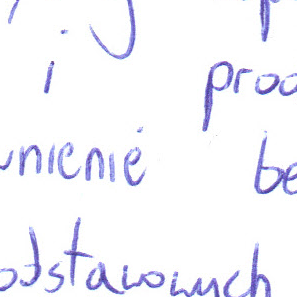 i proo
wnienie be
odstawowych